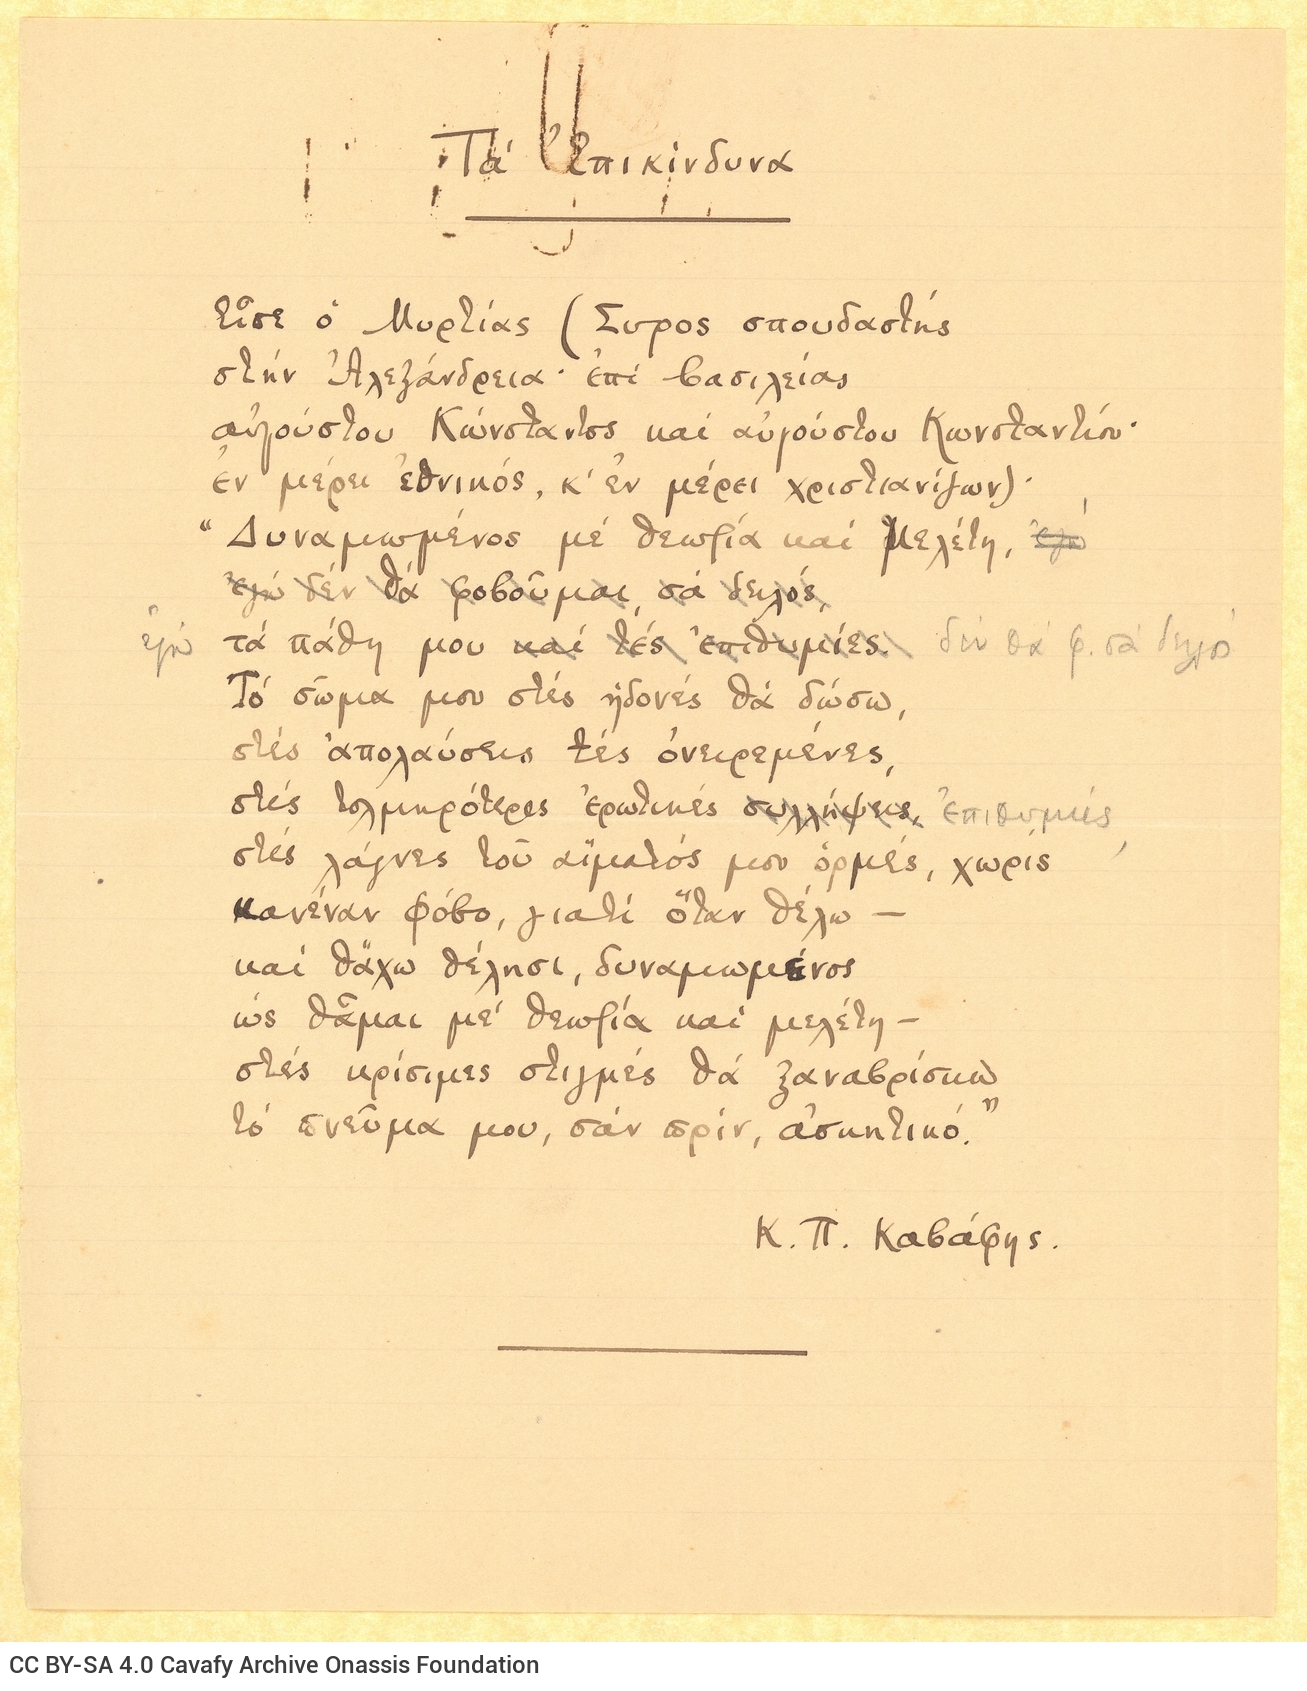 Τά Ἐπικίνδυνα
Εἶπε ὁ Μυρτίας (Σύρος σπουδαστής
στήν Ἀλεξάνδρεια· ἐπί βασιλείας
αὐγούστου Κώνσταντος καί αὐγούστου Κωνσταντίου·
ἐν μέρει ἐθνικός, κ' ἐν μέρει χριστιανίζων)·
“Δυναμωμένος μέ θεωρία καί μελέτη, ἐγώ
ἐγώ δέν θά φοβοῦμαι, σά δειλός,
ἐγώ τά πάθη μου καί τές ἐπιθυμίες. δέν θά φ. σά δειλός
Τό σῶμα μου στές ἡδονές θά δώσω,
στές ἀπολαύσεις τές ὀνειρεμένες,
στές τολμηρότερες ἐρωτικές συλλήψεις, ἐπιθυμίες,
στές λάγνες τοῦ αἵματός μου ὁρμές, χωρίς
κανέναν φόβο, γιατί ὅταν θέλω —
καί θἄχω θέλησι, δυναμωμένος
ὡς θἆμαι μέ θεωρία καί μελέτη —
στές κρίσιμες στιγμές θά ξαναβρίσκω
τό πνεῦμα μου, σάν πρίν, ἀσκητικό.”
Κ. Π. Καβάφης.
CC BY-SA 4.0 Cavafy Archive Onassis Foundation